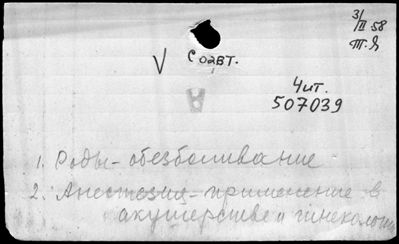 3/II 58
Т.Я
V с оавт.
Чит.
507039
1. Роды - обезболивание
2. Анестезия - применение в
акушерстве и гинекологии